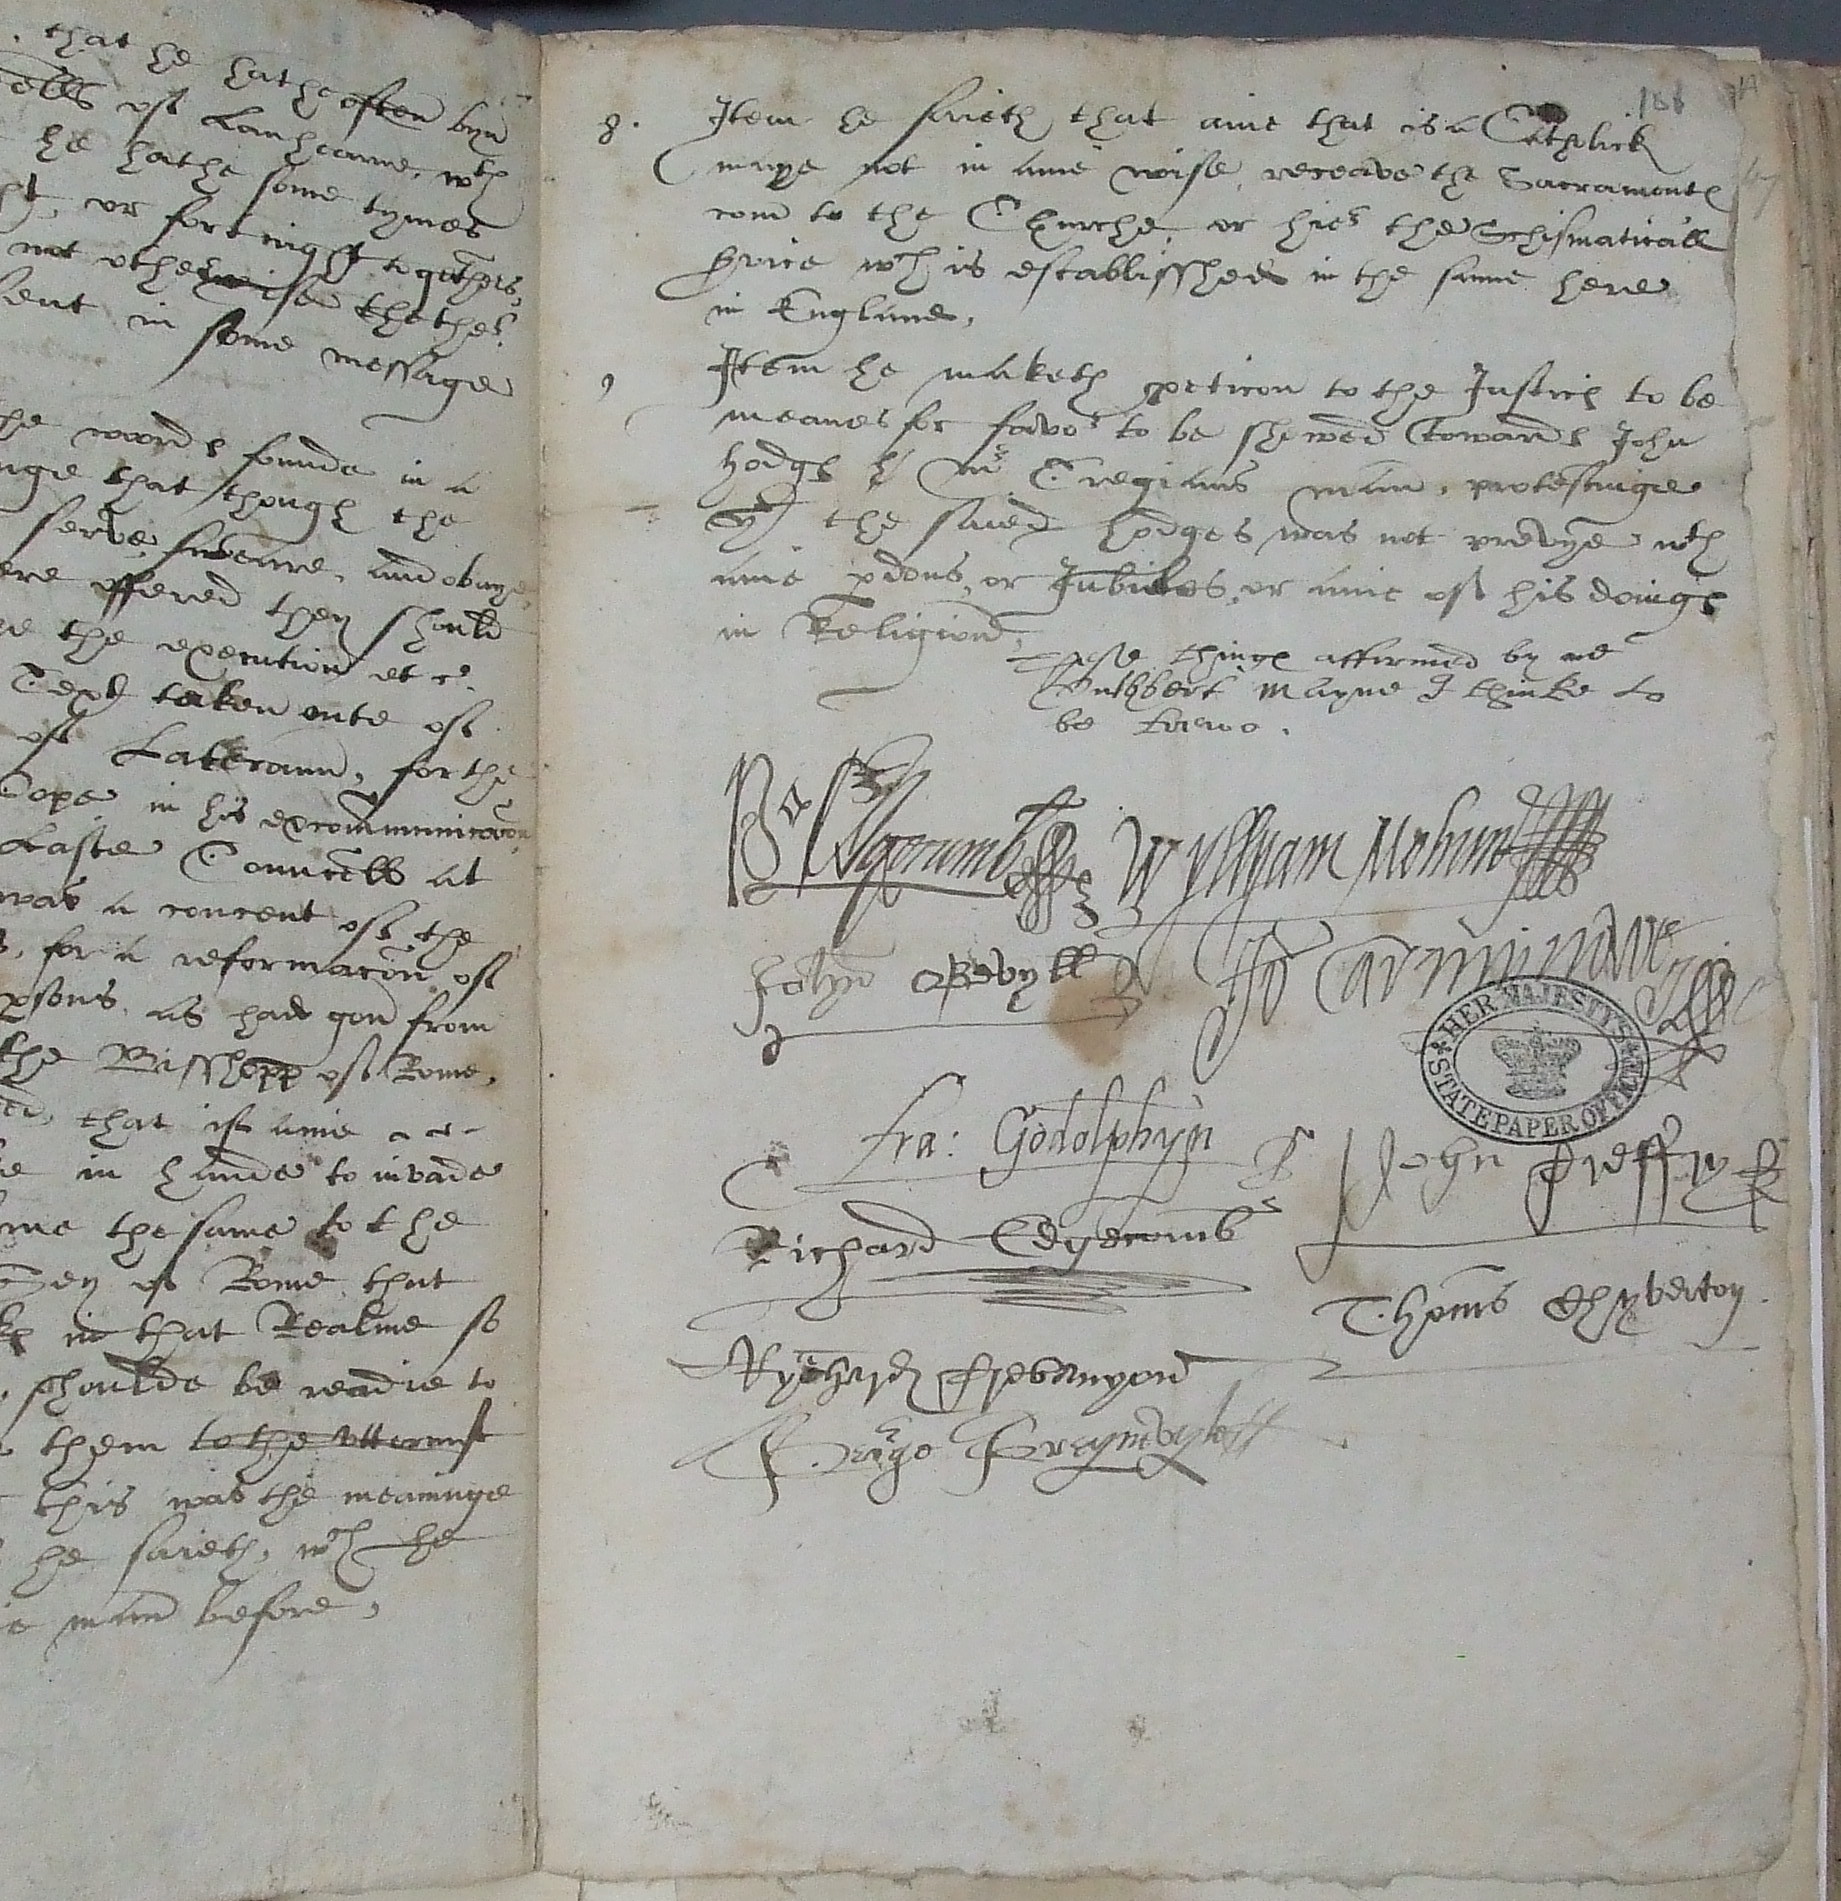 that he hathe often byn
ells of Lanhearne, wth
he hathe some tymes
or fortnight togethers,
not otherwise the thes
sent in some message
the words founde in a
that though the
serve, sweare, and obaye,
were offered they should
the execution et c.
Text taken oute of
of Laterann, for the
Pope in his excommunicacon,
Laste Councells at
was a concent of the
for a reformacon of
psons, as had gon from
the Bisshopp of Rome,
that if anie
in hande to invade
the same to the
Sey of Rome, that
in that Realme so
shoulde be readie to
them to the uttermost
this was the meaninge
he saieth, wch he
man before,
101
8. Item he saieth that anie that is a Catholick
maye not in anie wise, receave the Sacrament
com to the Churche, or hier the Schismaticall
service wch is establisshed in the same here
in England,
9 Item he maketh peticon to the Justices to be
meanes for favor to be shewed towards John
Hodges mr Tregians man, protestinge
yt the saied Hodges was not prevye wth
anie pdons, or Jubiles, or anie of his doings
in Religion,
These things affirmed by me
Cuthbert Mayne I thinke to
be trewe.
Wyllyam Mohun
John Bevyll
Fra: Godolphyn
HER MAJESTY'S STATE PAPER OFFICE
John Treffry
Richard Edgecomb
Thoms Chyverton
Rychard Trevanyon